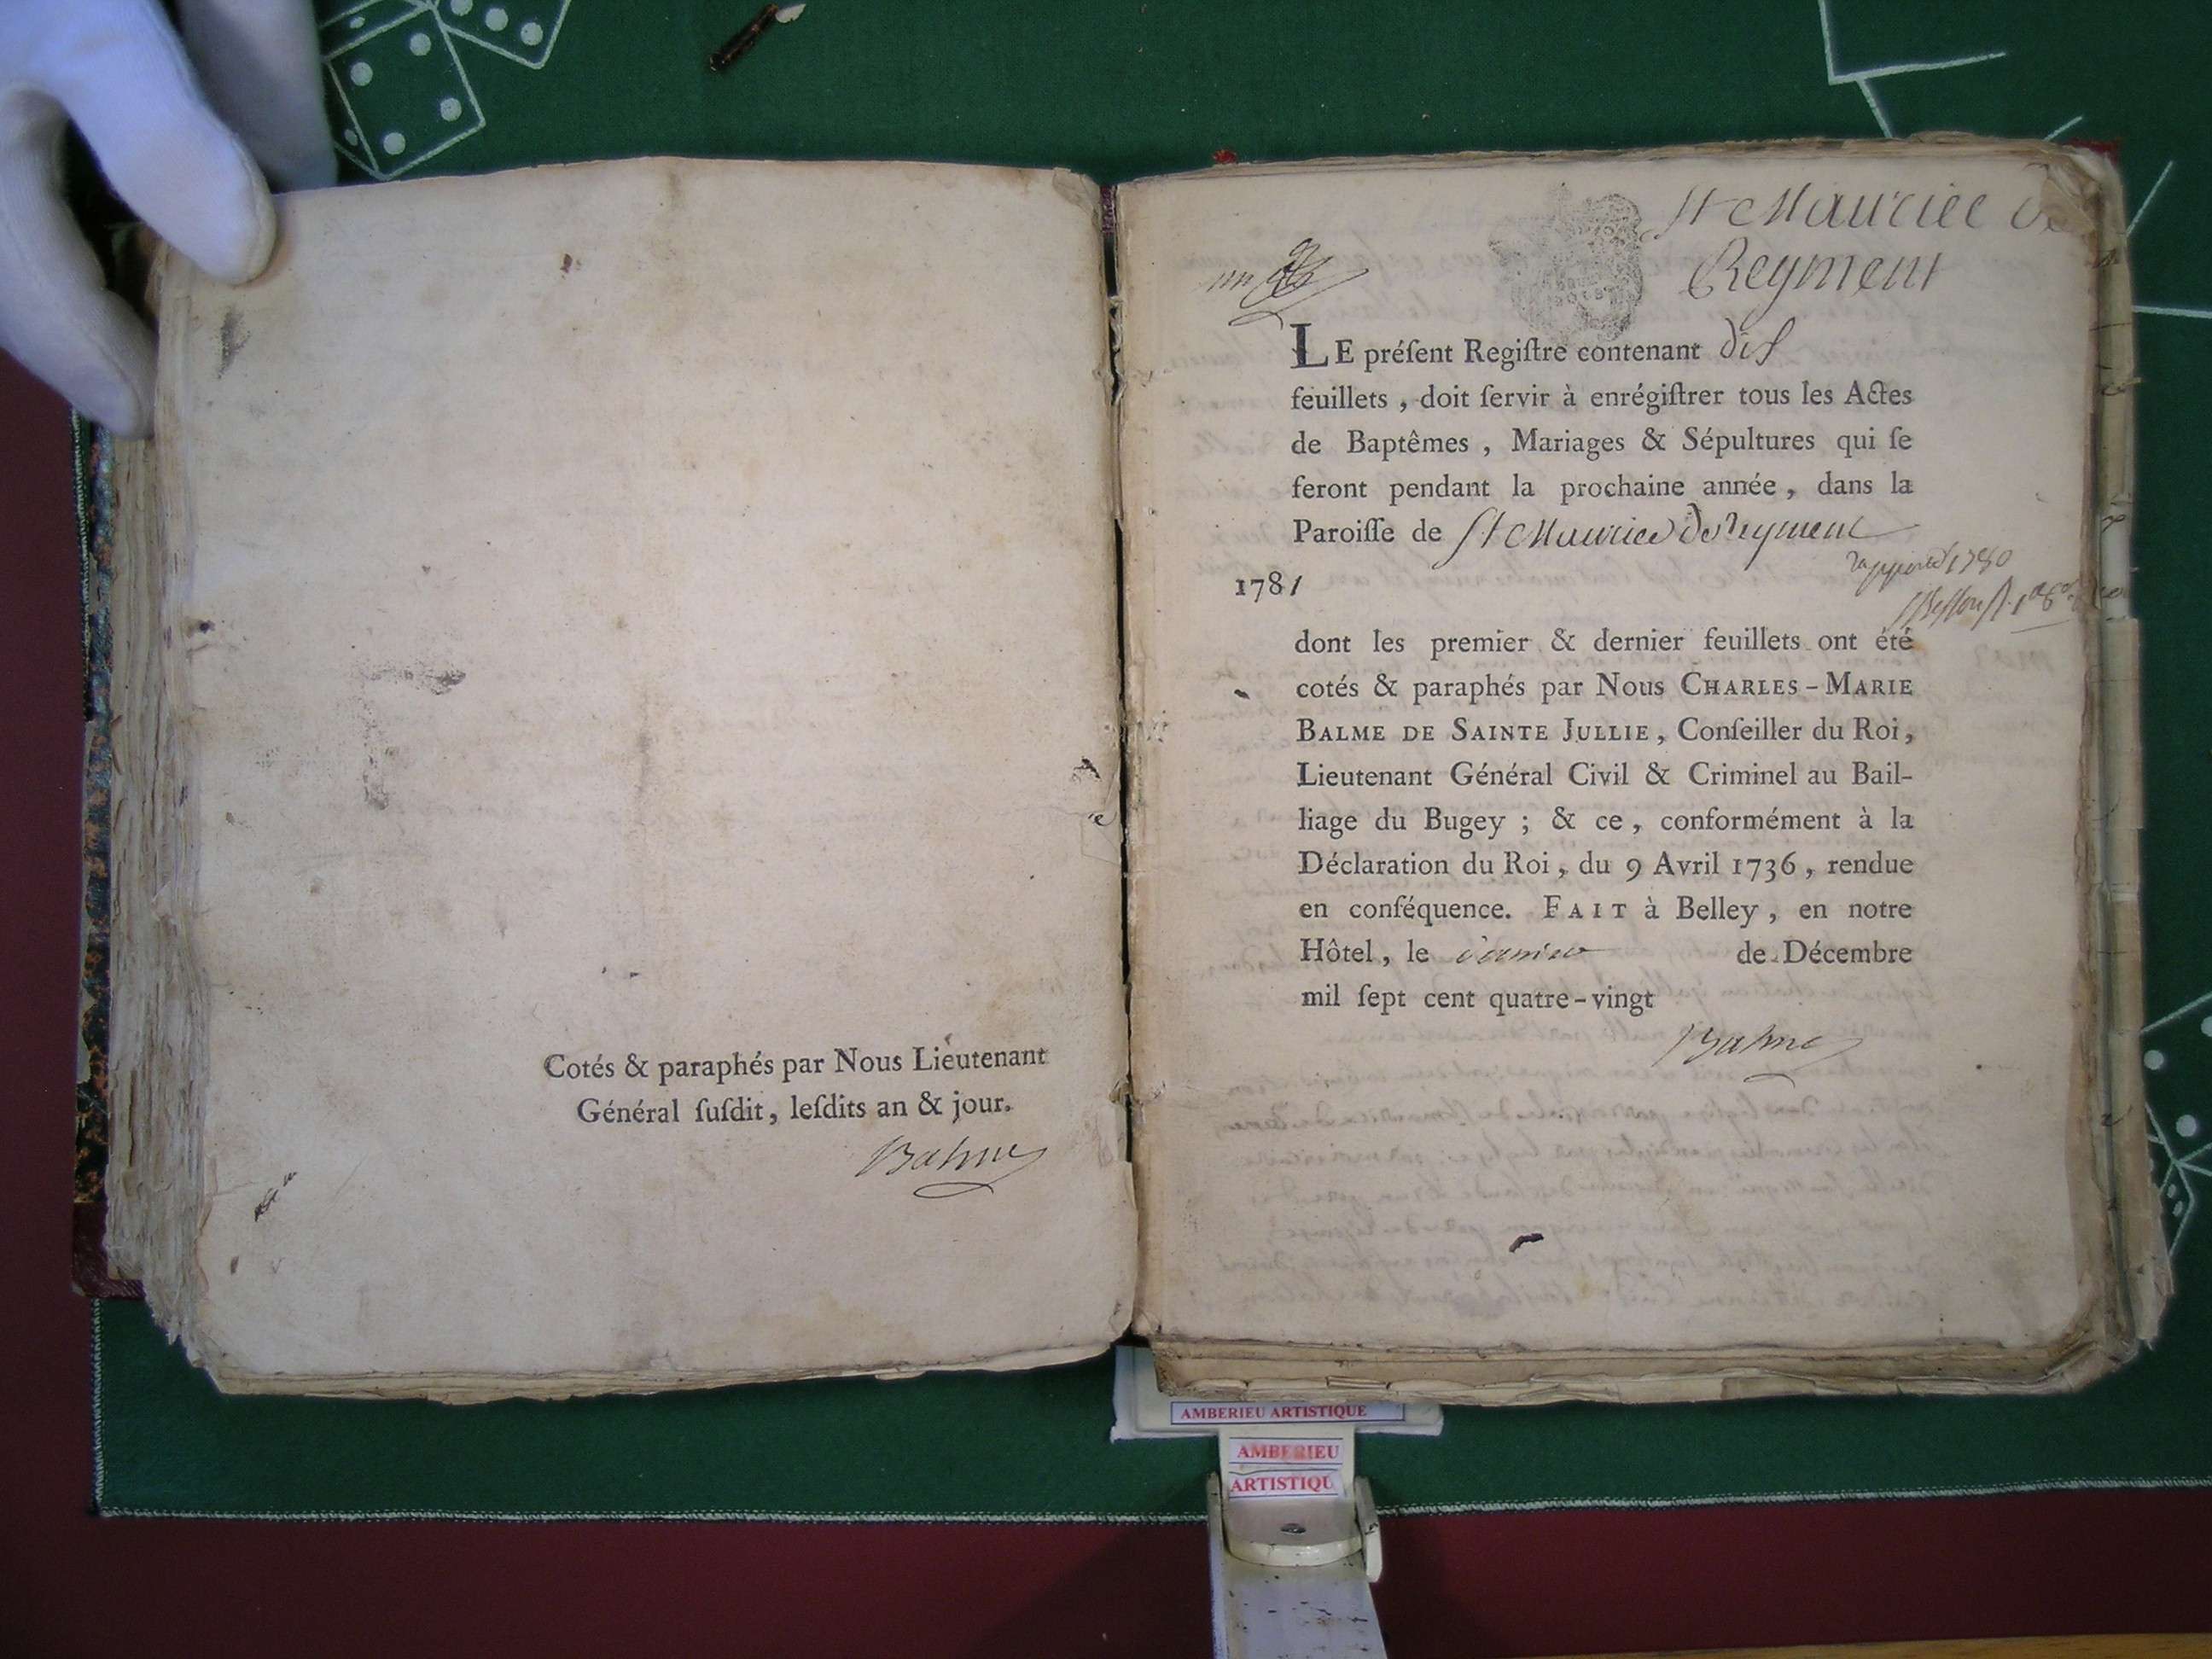 Cotés & paraphés par Nous Lieutenant
Général ſuſdit, leſdits an & jour.
Balme
St Mauricee de
Reyment
un
LE préſent Regiſtre contenant dix
feuillets, doit ſervir à enrégiſtrer tous les Actes
de Baptêmes, Mariages & Sépultures qui ſe
feront pendant la prochaine année, dans la
Paroiſſe de St Maurice de reyment
1781
1780
dont les premier & dernier feuillets ont été
cotés & paraphés par Nous CHARLES-MARIE
BALME DE SAINTE JULLIE, Conſeiller du Roi,
Lieutenant Général Civil & Criminel au Bail-
liage du Bugey; & ce, conformément à la
Déclaration du Roi, du 9 Avril 1736, rendue
en conſéquence. FAIT à Belley, en notre
Hôtel, le dernier de Décembre
mil ſept cent quatre-vingt
Balme
AMBERIEU ARTISTIQUE
AMBERIEU
ARTISTIQU